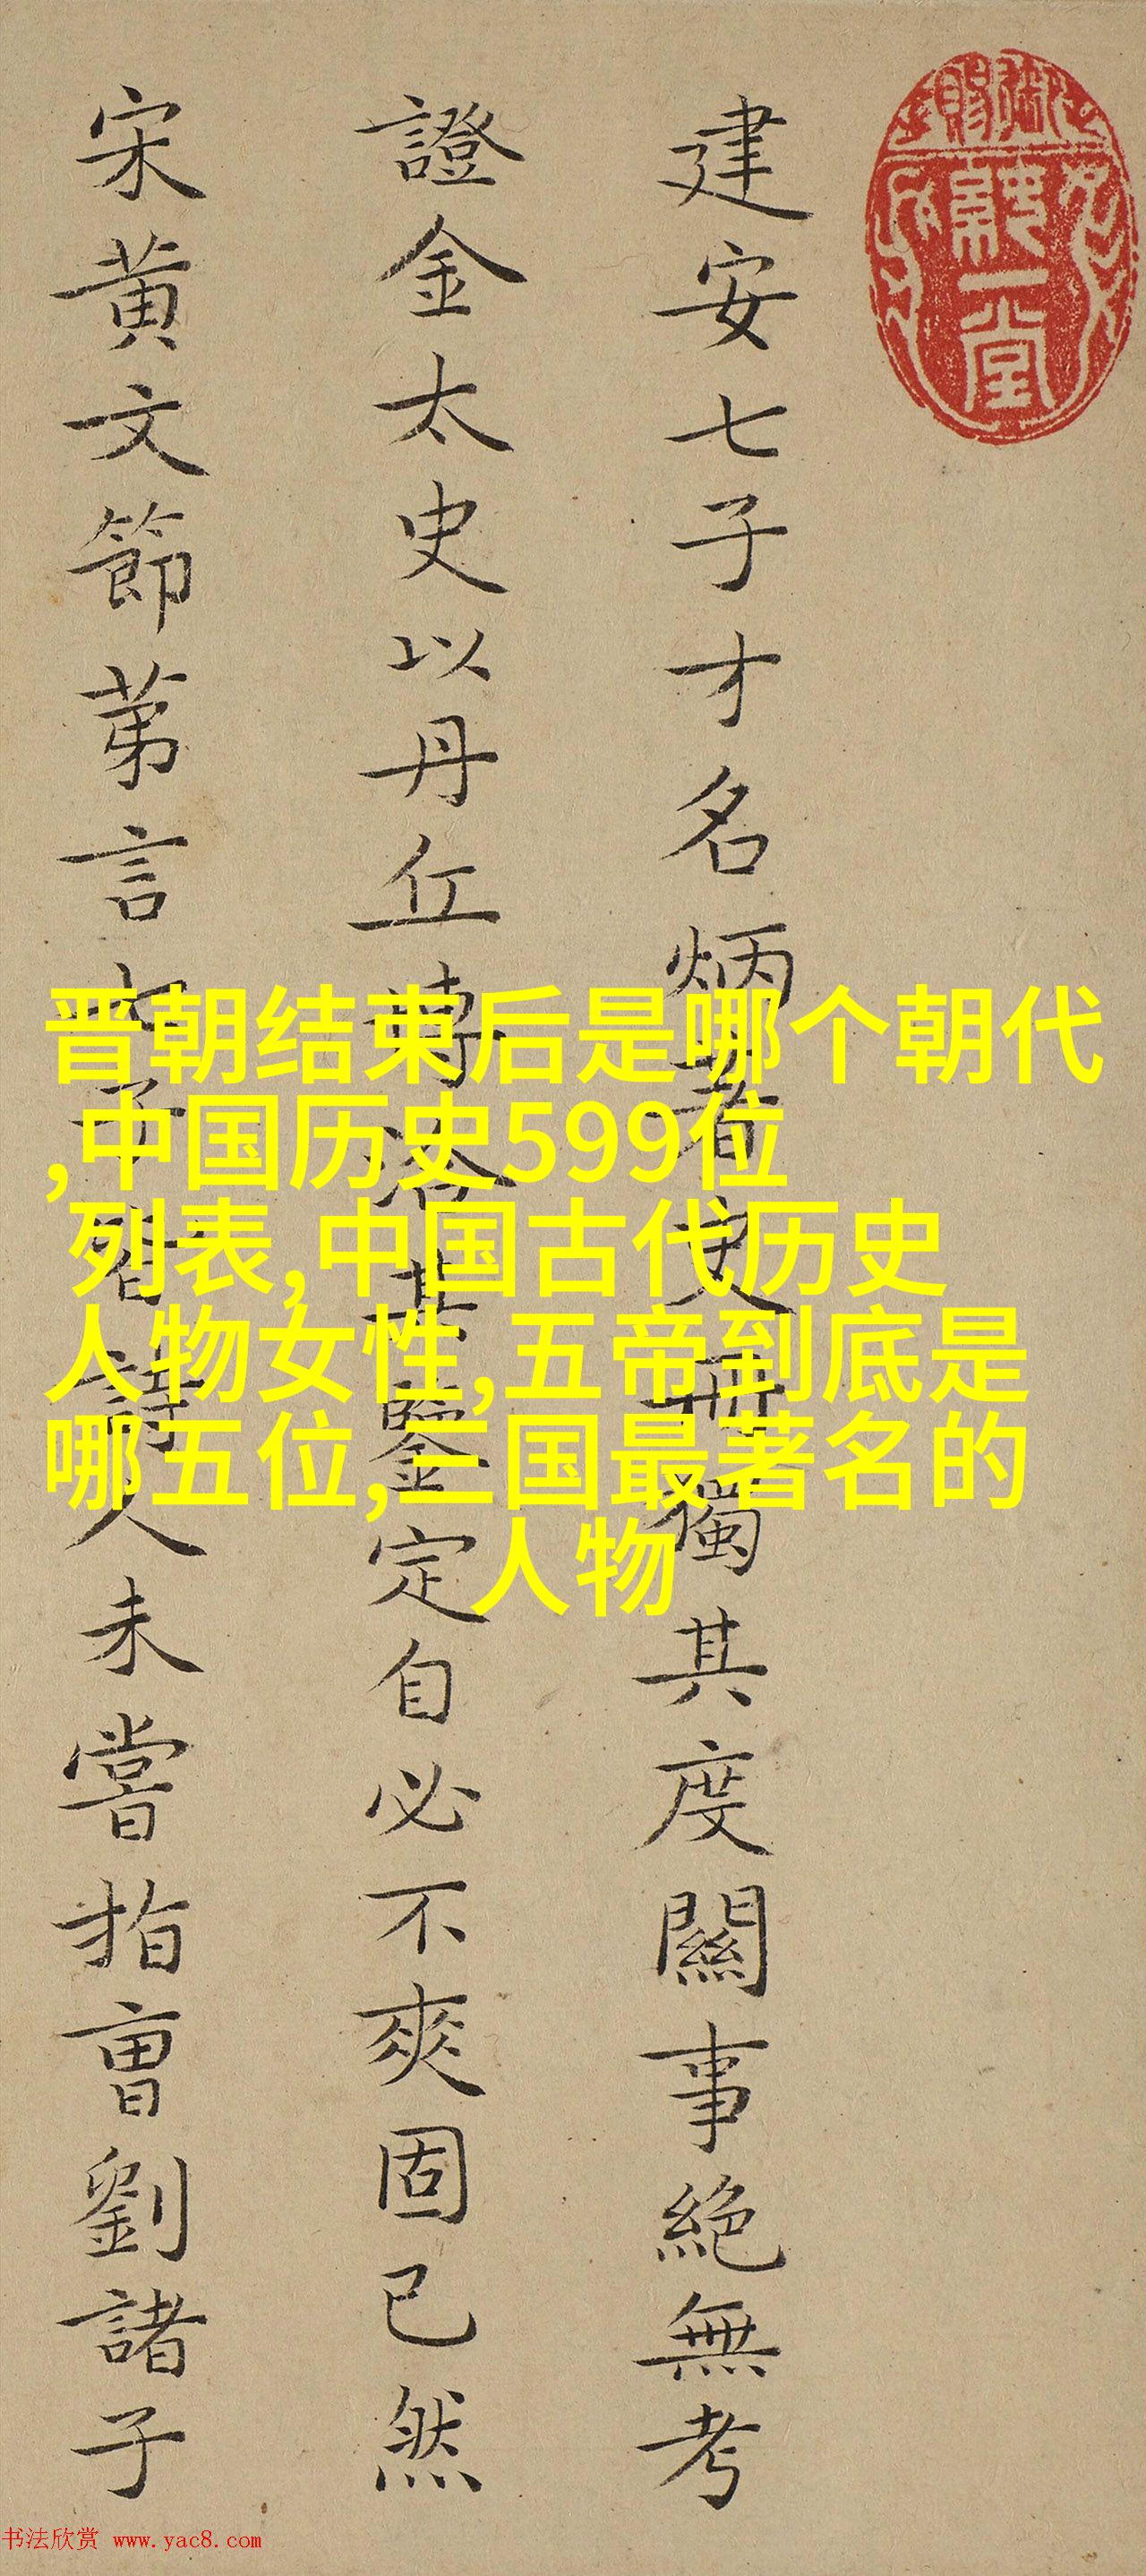 建安七子才名炳著史冊獨其度關事絕無考
證金太史以丹丘專洽其鑒定自必不爽固已然
宋黃文節苐言七子皆詩人未嘗指曹劉諸子
晋朝结束后是哪个朝代
,中国历史599位
,列表,中国古代历史
人物女性,五帝到底是
哪五位,三国最著名的
人物
书法欣赏 www.yac8.com